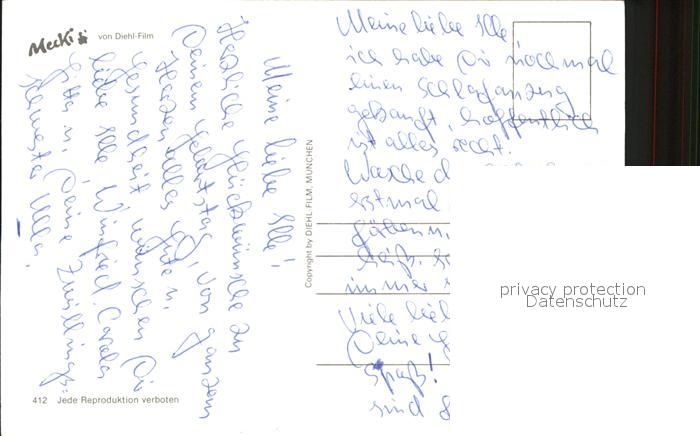 Mecki von Diehl-Film
Meine liebe Elle!
Herzliche Glückwünsche zu
Deinem Geburtstag, von ganzem
Herzen alles Gute u.
Gesundheit wünschen Dir
liebe Elle, Winfried,
Gitta u. Deine Zwillings-
schwester Ulla.
412 Jede Reproduktion verboten
Copyright by DIEHL-FILM, MÜNCHEN
Meine liebe Elle
ich habe Dir nochmal
einen Schlafanzug
gekauft, hoffentlich
ist alles recht.
Wasche d
erstmal
immer
Viele lie
Deine
Spaß!
sind
privacy protection
Datenschutz